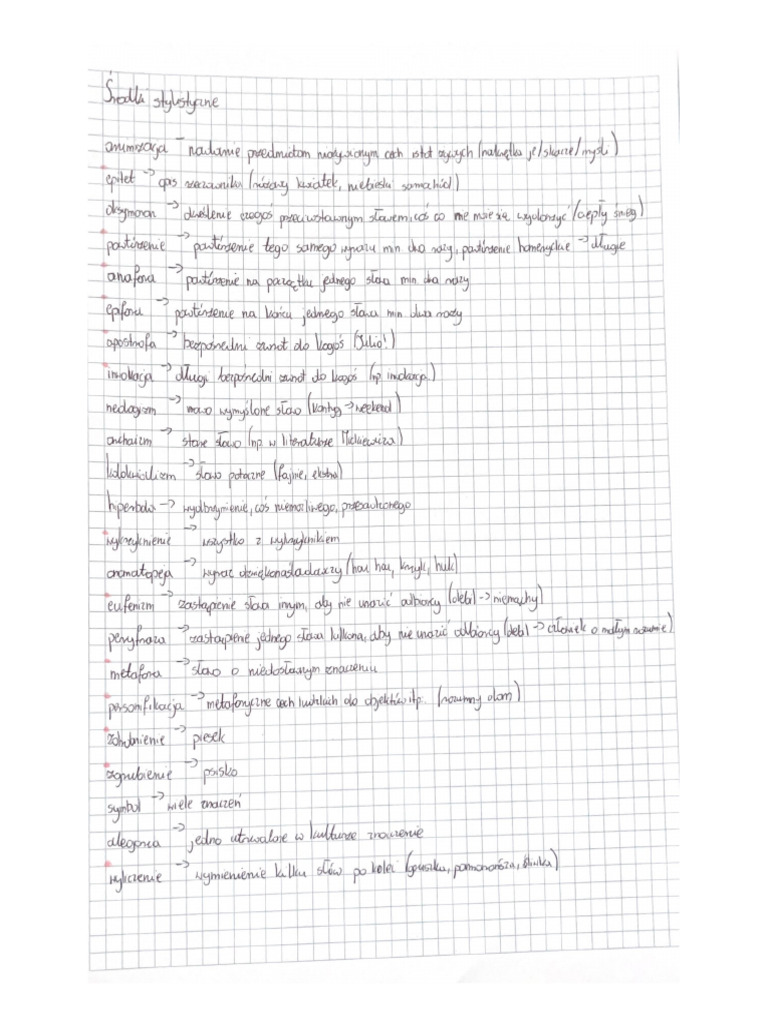 Środki stylistyczne
animizacja – nadanie przedmiotom nieożywionym cech istot żywych (nakrętka je/skacze/myśli)
epitet → opis rzeczownika (różowy kwiatek, niebieski samochód)
oksymoron → określenie czegoś przeciwstawnym słowem, coś co nie może się wydarzyć (ciepły śnieg)
powtórzenie → powtórzenie tego samego wyrazu min dwa razy, powtórzenie homeryckie → długie
anafora → powtórzenie na początku jednego słowa min dwa razy
epifora → powtórzenie na końcu jednego słowa min. dwa razy
apostrofa → bezpośredni zwrot do kogoś (Julio!)
inwokacja → długi bezpośredni zwrot do kogoś (np inwokacja)
neologizm → nowo wymyślone słowo (→ weekend)
archaizm → stare słowo (np. w literaturze Mickiewicza)
kolokwializm → słowo potoczne (fajnie, ekstra)
hiperbola → wyolbrzymienie, coś niemożliwego, przesadzonego
wykrzyknienie → wszystko z wykrzyknikiem
onomatopeja → wyraz dźwiękonaśladowczy (hau hau, krzyk, huk)
eufemizm → zastąpienie słowa innym, aby nie urazić odbiorcy (debil → niemądry)
peryfraza → zastąpienie jednego słowa kilkoma, aby nie urazić odbiorcy (debil → człowiek o małym rozumie)
metafora → słowo o niedosłownym znaczeniu
personifikacja → metaforyczne cech ludzkich do objektów itp. (rozumny atom)
zdrobnienie → piesek
zgrubienie → psisko
symbol → wiele znaczeń
alegoria → jedno utrwalone w kulturze znaczenie
wyliczenie → wymienienie kilku słów po kolei (gruszka, pomarańcza, śliwka)